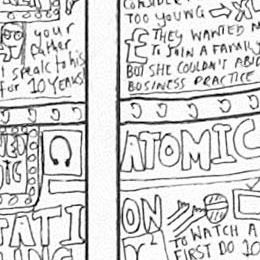 your
father
I speak to his
for 10 YEARS
TATI
TOO YOUNG
£ THEY WANTED M
TO JOIN A FAMILY
BUT SHE COULDN'T ABID
BUSINESS PRACTICE
ATOMIC
ON
TO WATCH A
FIRST DO 10